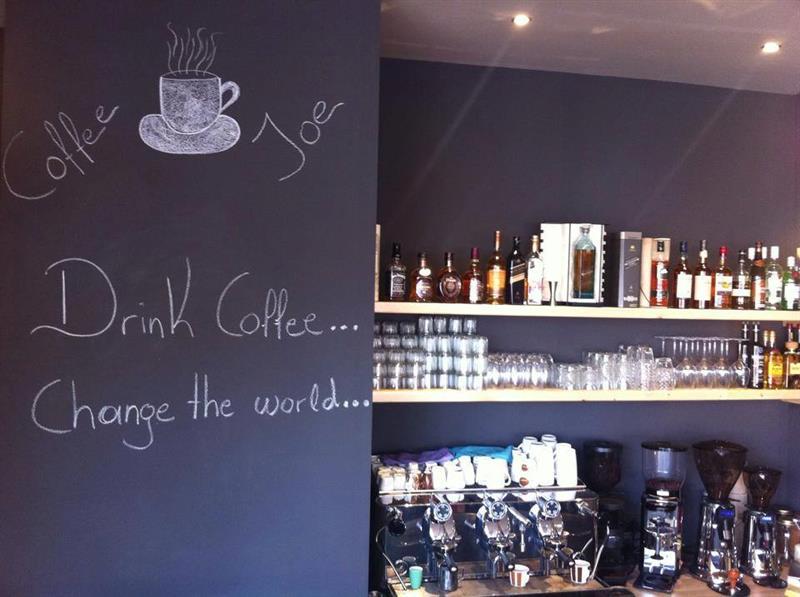 Coffee Joe
Drink Coffee...
Change the world...